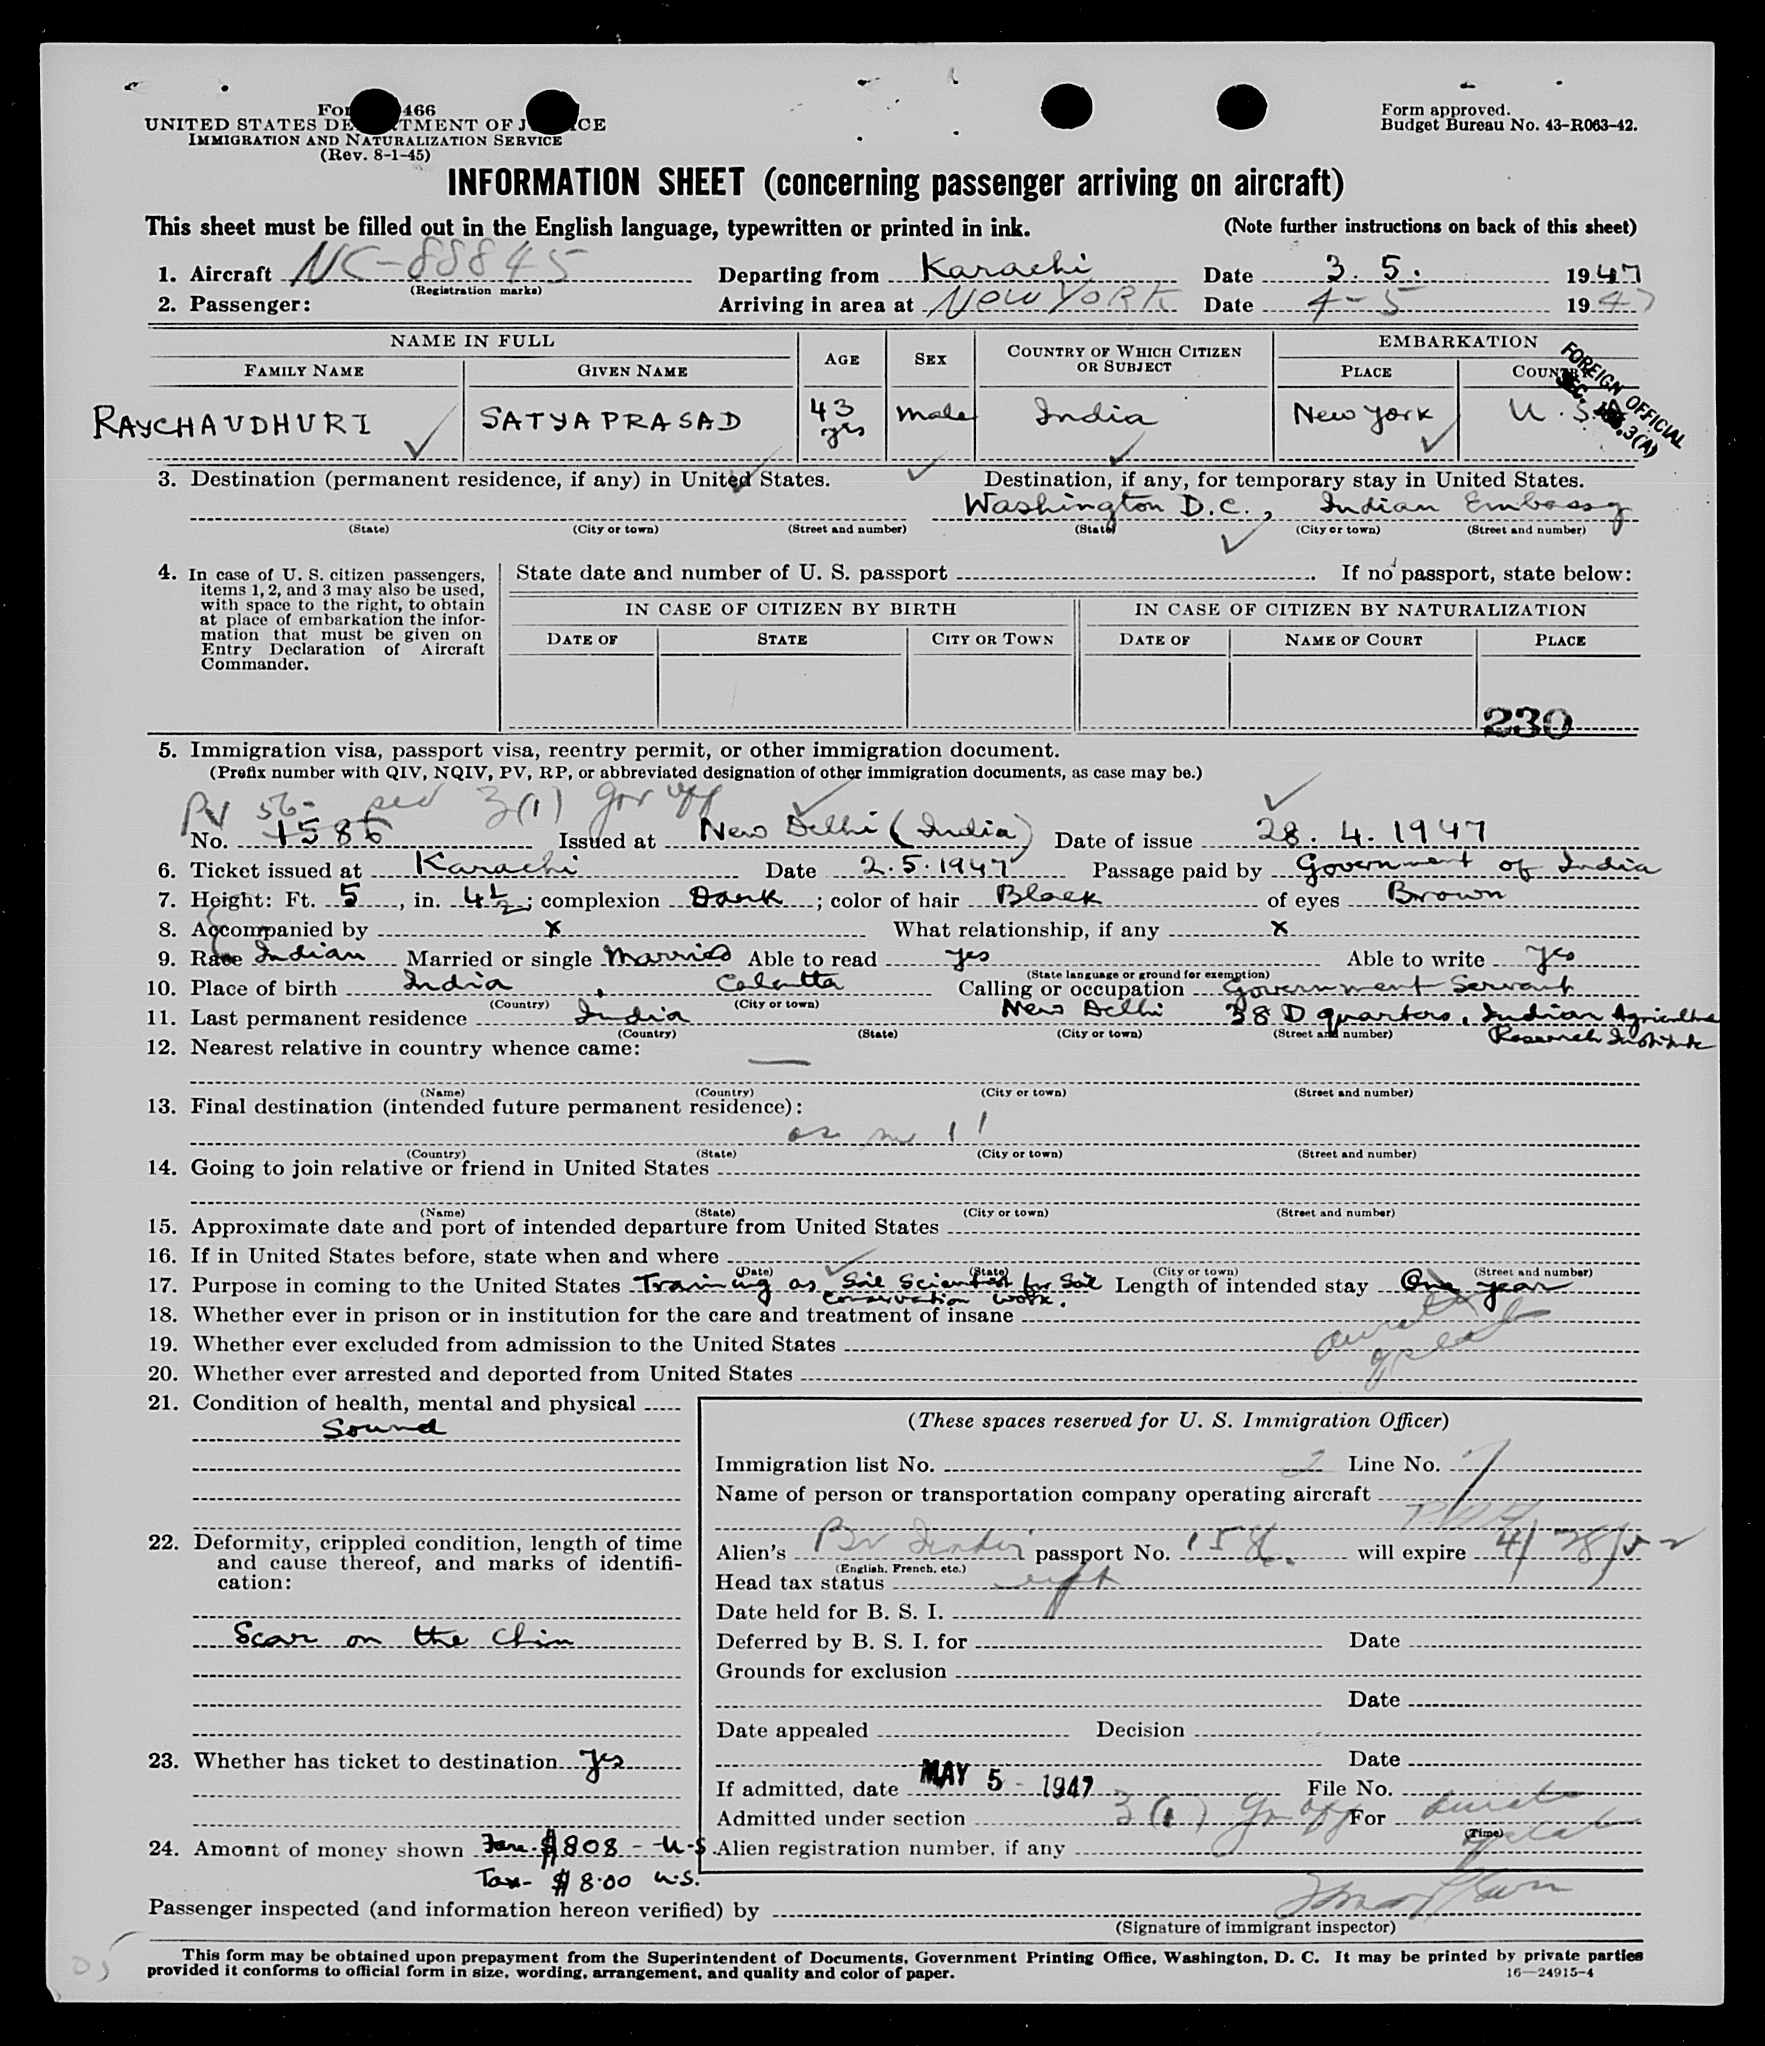 Form 466
UNITED STATES DEPARTMENT OF JUSTICE
IMMIGRATION AND NATURALIZATION SERVICE
(Rev. 8-1-45)
Form approved.
Budget Bureau No. 43-R063-42.
INFORMATION SHEET (concerning passenger arriving on aircraft)
This sheet must be filled out in the English language, typewritten or printed in ink. (Note further instructions on back of this sheet)
1. Aircraft NC-88845 Departing from Karachi Date 3.5. 1947
(Registration marks)
2. Passenger: Arriving in area at NEW YORK Date 4-5 1947
NAME IN FULL AGE SEX COUNTRY OF WHICH CITIZEN OR SUBJECT EMBARKATION
FAMILY NAME GIVEN NAME PLACE COUNTRY
FOREIGN OFFICIAL
SEC. 3(A)
RAYCHAUDHURI SATYAPRASAD 43 yrs Male India New York U.S.
3. Destination (permanent residence, if any) in United States. Destination, if any, for temporary stay in United States.
Washington D.C., Indian Embassy
(State) (City or town) (Street and number) (State) (City or town) (Street and number)
4. In case of U. S. citizen passengers, items 1, 2, and 3 may also be used, with space to the right, to obtain at place of embarkation the information that must be given on Entry Declaration of Aircraft Commander.
State date and number of U. S. passport . If no passport, state below:
IN CASE OF CITIZEN BY BIRTH IN CASE OF CITIZEN BY NATURALIZATION
DATE OF STATE CITY OR TOWN DATE OF NAME OF COURT PLACE
230
5. Immigration visa, passport visa, reentry permit, or other immigration document.
(Prefix number with QIV, NQIV, PV, RP, or abbreviated designation of other immigration documents, as case may be.)
PV 56- sec 3(1) gov off
No. 1586 Issued at New Delhi (India) Date of issue 28.4.1947
6. Ticket issued at Karachi Date 2.5.1947 Passage paid by Government of India
7. Height: Ft. 5, in. 4½; complexion Dark; color of hair Black of eyes Brown
8. Accompanied by x What relationship, if any x
9. Race Indian Married or single Married Able to read yes Able to write yes
(State language or ground for exemption)
10. Place of birth India, Calcutta Calling or occupation Government Servant
(Country) (City or town)
11. Last permanent residence India New Delhi 38 D quarters, Indian Agricultural
Research Institute
(Country) (State) (City or town) (Street and number)
12. Nearest relative in country whence came:
—
(Name) (Country) (City or town) (Street and number)
13. Final destination (intended future permanent residence):
as in 11
(Country) (State) (City or town) (Street and number)
14. Going to join relative or friend in United States
(Name) (State) (City or town) (Street and number)
15. Approximate date and port of intended departure from United States
16. If in United States before, state when and where
(Date) (State) (City or town) (Street and number)
17. Purpose in coming to the United States Training as Soil Scientist for Soil Length of intended stay One year
Conservation work.
18. Whether ever in prison or in institution for the care and treatment of insane
19. Whether ever excluded from admission to the United States
20. Whether ever arrested and deported from United States
21. Condition of health, mental and physical
Sound
22. Deformity, crippled condition, length of time and cause thereof, and marks of identification:
Scar on the Chin
23. Whether has ticket to destination Yes
24. Amount of money shown Fare- $808 - U.S.
Tax- $8.00 U.S.
(These spaces reserved for U. S. Immigration Officer)
Immigration list No. 2 Line No. 7
Name of person or transportation company operating aircraft
Alien's Br Indian passport No. will expire 4/28/52
(English, French, etc.)
Head tax status
Date held for B. S. I.
Deferred by B. S. I. for Date
Grounds for exclusion
Date
Date appealed Decision
Date
If admitted, date MAY 5 - 1947 File No.
Admitted under section 3(1) gov off For
(Time)
Alien registration number, if any
Passenger inspected (and information hereon verified) by
(Signature of immigrant inspector)
This form may be obtained upon prepayment from the Superintendent of Documents, Government Printing Office, Washington, D. C. It may be printed by private parties
provided it conforms to official form in size, wording, arrangement, and quality and color of paper. 16—24915-4